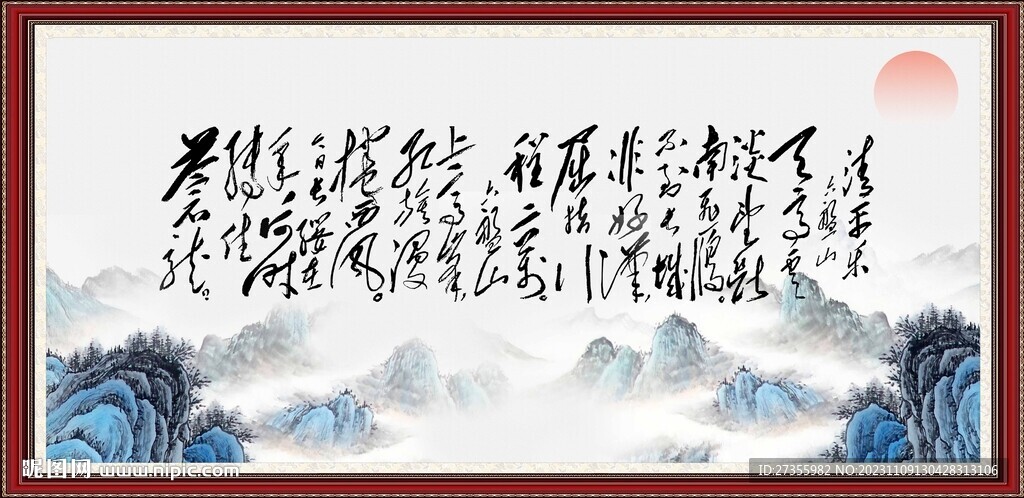 清平乐
六盤山
天高雲
淡望斷
南飛鴈。
不到長城
非好漢,
屈指行
程二萬。
六盤山
上高峰,
紅旗漫
捲西風。
今日長纓在
手,何時
縛住
蒼龍?
昵图网 www.nipic.com
ID:27355982 NO:20231109130428313106